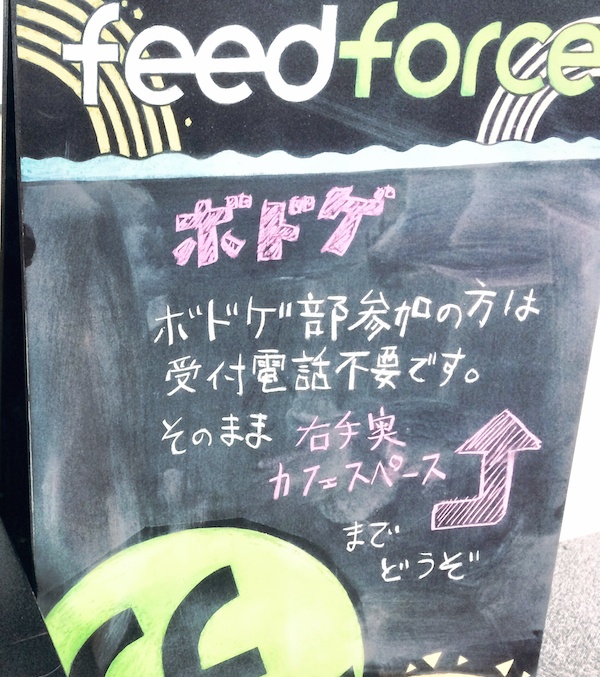 feedforce
ボドゲ
ボドゲ部参加の方は
受付電話不要です。
そのまま 右手実
カフェスペース
まで
どうぞ